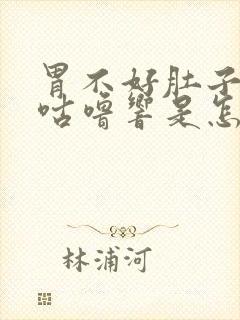 胃不好肚子
咕噜响是怎
林浦河